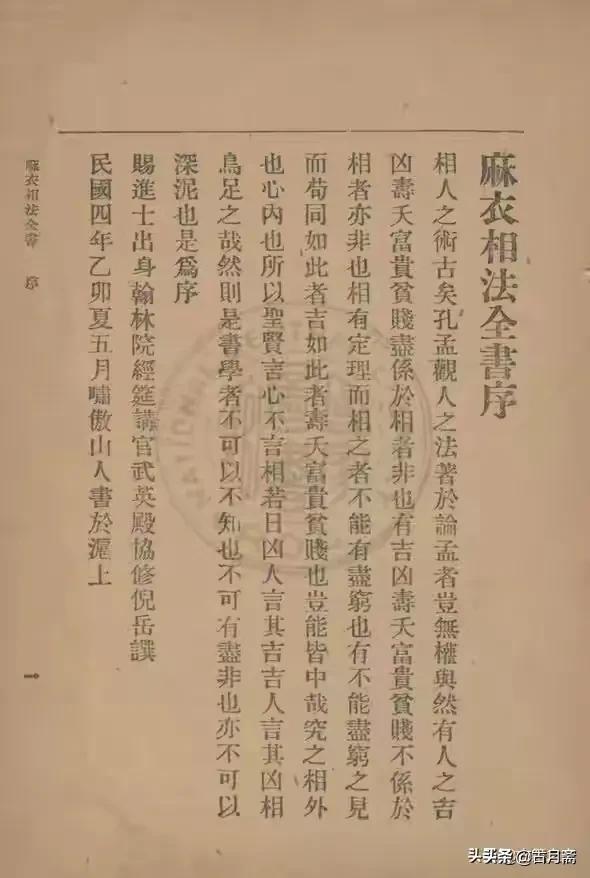 麻衣相法全書序
相人之術古矣孔孟觀人之法著於論孟者豈無權與然有人之吉
凶壽夭富貴貧賤盡係於相者非也有吉凶壽夭富貴貧賤不係於
相者亦非也相有定理而相之者不能有盡窮也有不能盡窮之見
而苟同如此者吉如此者壽夭富貴貧賤也豈能皆中哉究之相外
也心內也所以聖賢言心不言相若日凶人言其吉吉人言其凶相
鳥足之哉然則是書學者不可以不知也不可有盡非也亦不可以
深泥也是爲序
賜進士出身翰林院經筵講官武英殿協修倪岳譔
民國四年乙卯夏五月嘯傲山人書於滬上
麻衣相法全書 序
一
NATION
头条@苦月斋